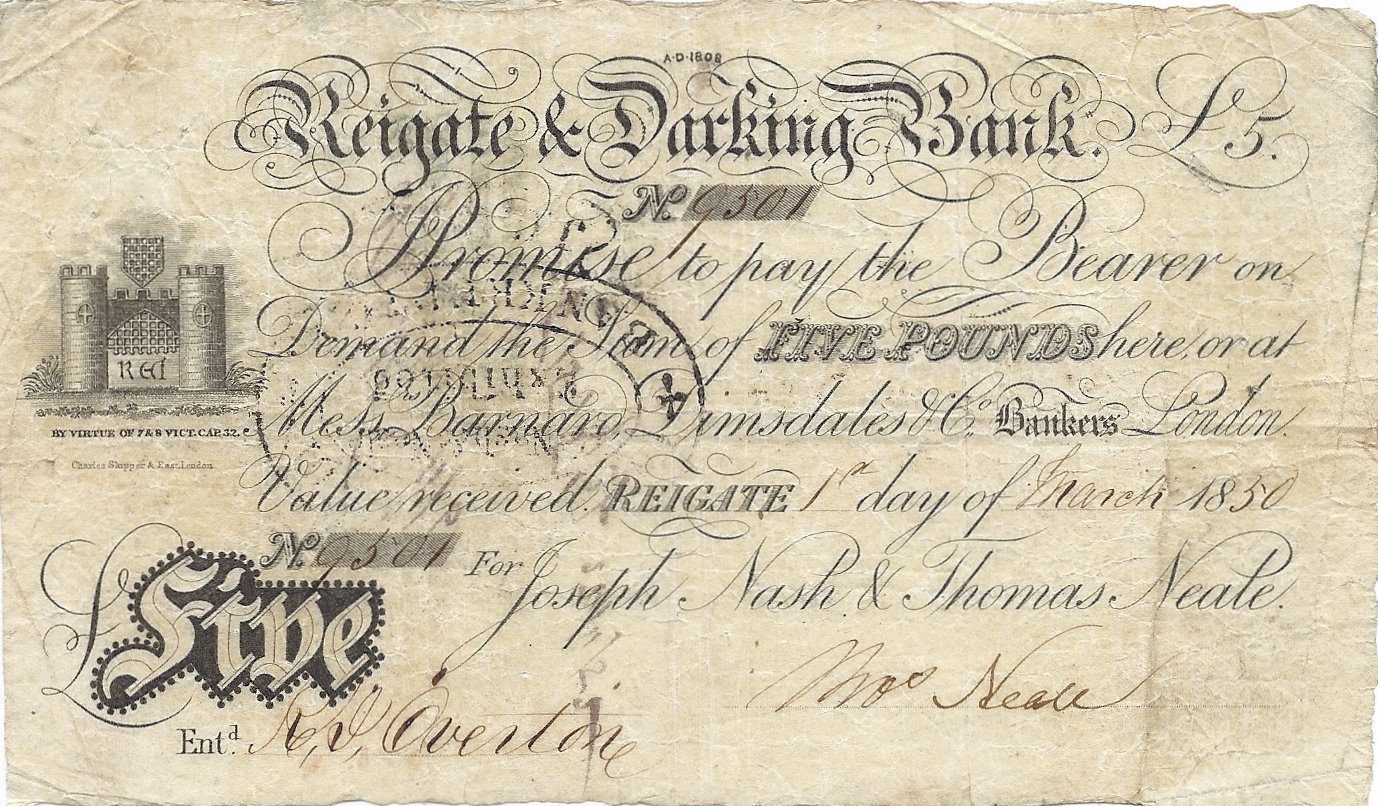 A·D·1808
Reigate & Darking Bank. £5.
No. 9501
I Promise to pay the Bearer on
Demand the Sum of FIVE POUNDS here, or at
Messrs. Barnard, Dimsdales & Co. Bankers London.
BY VIRTUE OF 7 & 8 VICT. CAP. 32.
Charles Skipper & East, London
Value received. REIGATE 1st day of March 1850
No. 9501 For Joseph Nash & Thomas Neale.
£ Five
Thos Neale
Entd. Overton
BANKRUPT
Exhibited